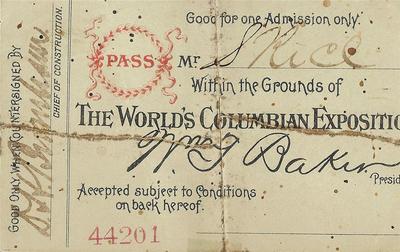 Good for one Admission only.
PASS
Mr S Rice
Within the Grounds of
THE WORLD'S COLUMBIAN EXPOSITIO
Wm T Baker
Presid
Accepted subject to Conditions
on back hereof.
44201
GOOD ONLY WHEN COUNTERSIGNED BY
CHIEF OF CONSTRUCTION.